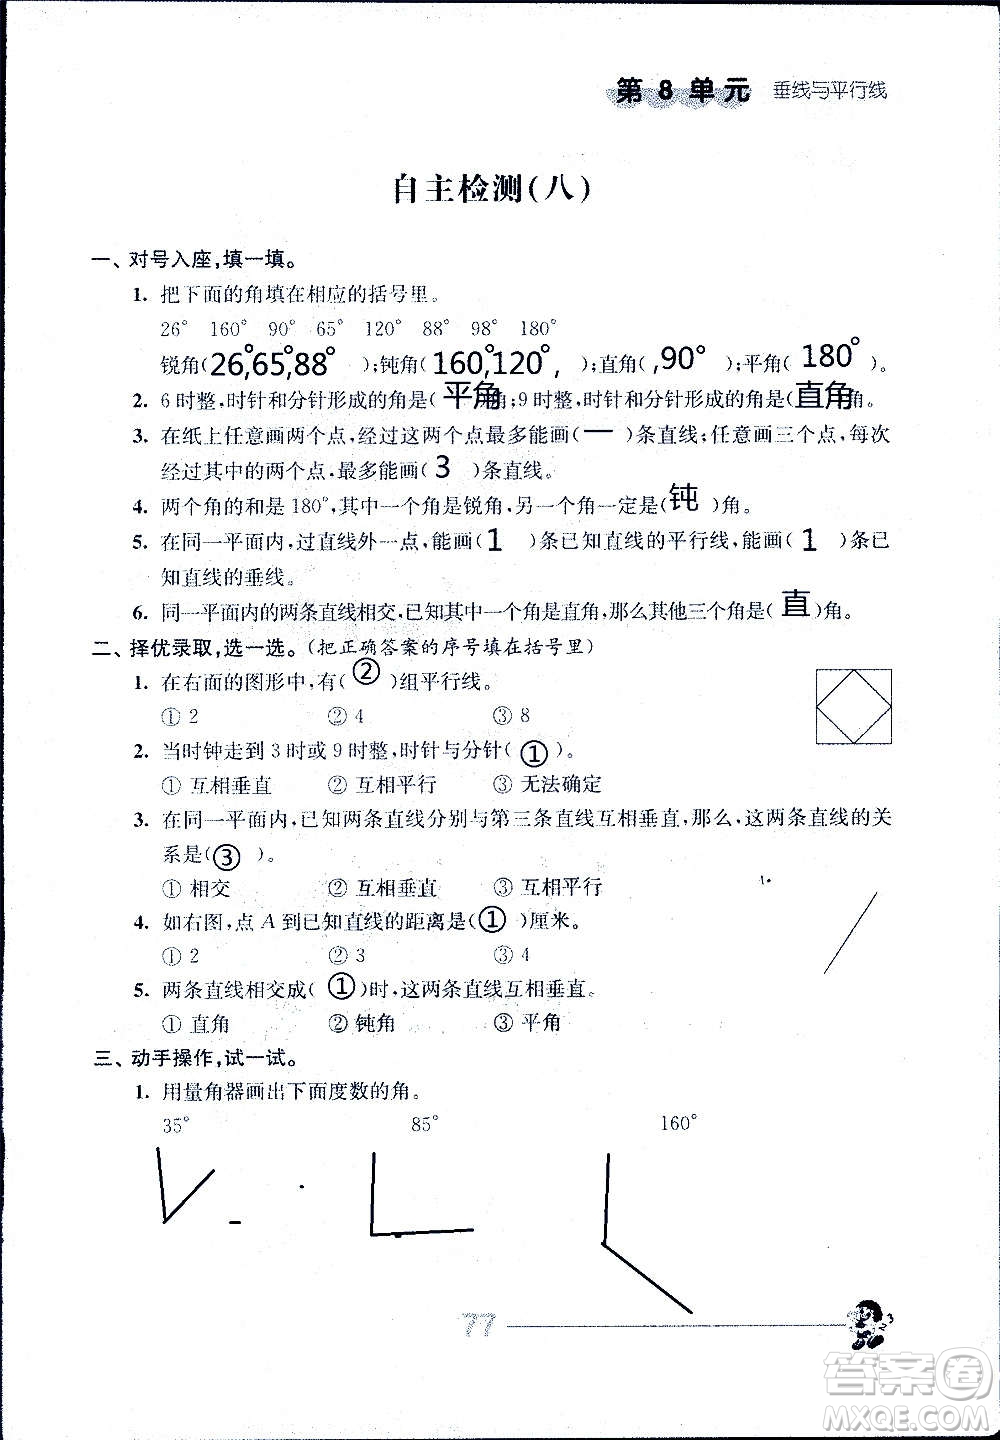 第 8 单元 垂线与平行线
自主检测(八)
一、对号入座,填一填。
1. 把下面的角填在相应的括号里。
26° 160° 90° 65° 120° 88° 98° 180°
锐角(26,65,88° );钝角(160,120° , );直角(,90° );平角(180° )。
2. 6 时整,时针和分针形成的角是( 平角 角;9 时整,时针和分针形成的角是(直角 角。
3. 在纸上任意画两个点,经过这两个点最多能画( 一 )条直线;任意画三个点,每次
经过其中的两个点,最多能画( 3 )条直线。
4. 两个角的和是 180°,其中一个角是锐角,另一个角一定是( 钝 )角。
5. 在同一平面内,过直线外一点,能画( 1 )条已知直线的平行线,能画( 1 )条已
知直线的垂线。
6. 同一平面内的两条直线相交,已知其中一个角是直角,那么其他三个角是( 直 )角。
二、择优录取,选一选。(把正确答案的序号填在括号里)
1. 在右面的图形中,有( ② )组平行线。
① 2 ② 4 ③ 8
2. 当时钟走到 3 时或 9 时整,时针与分针( ① )。
① 互相垂直 ② 互相平行 ③ 无法确定
3. 在同一平面内,已知两条直线分别与第三条直线互相垂直,那么,这两条直线的关
系是( ③ )。
① 相交 ② 互相垂直 ③ 互相平行
4. 如右图,点 A 到已知直线的距离是( ① )厘米。
① 2 ② 3 ③ 4
5. 两条直线相交成( ① )时,这两条直线互相垂直。
① 直角 ② 钝角 ③ 平角
三、动手操作,试一试。
1. 用量角器画出下面度数的角。
35° 85° 160°
77
答案圈
MXQE.COM